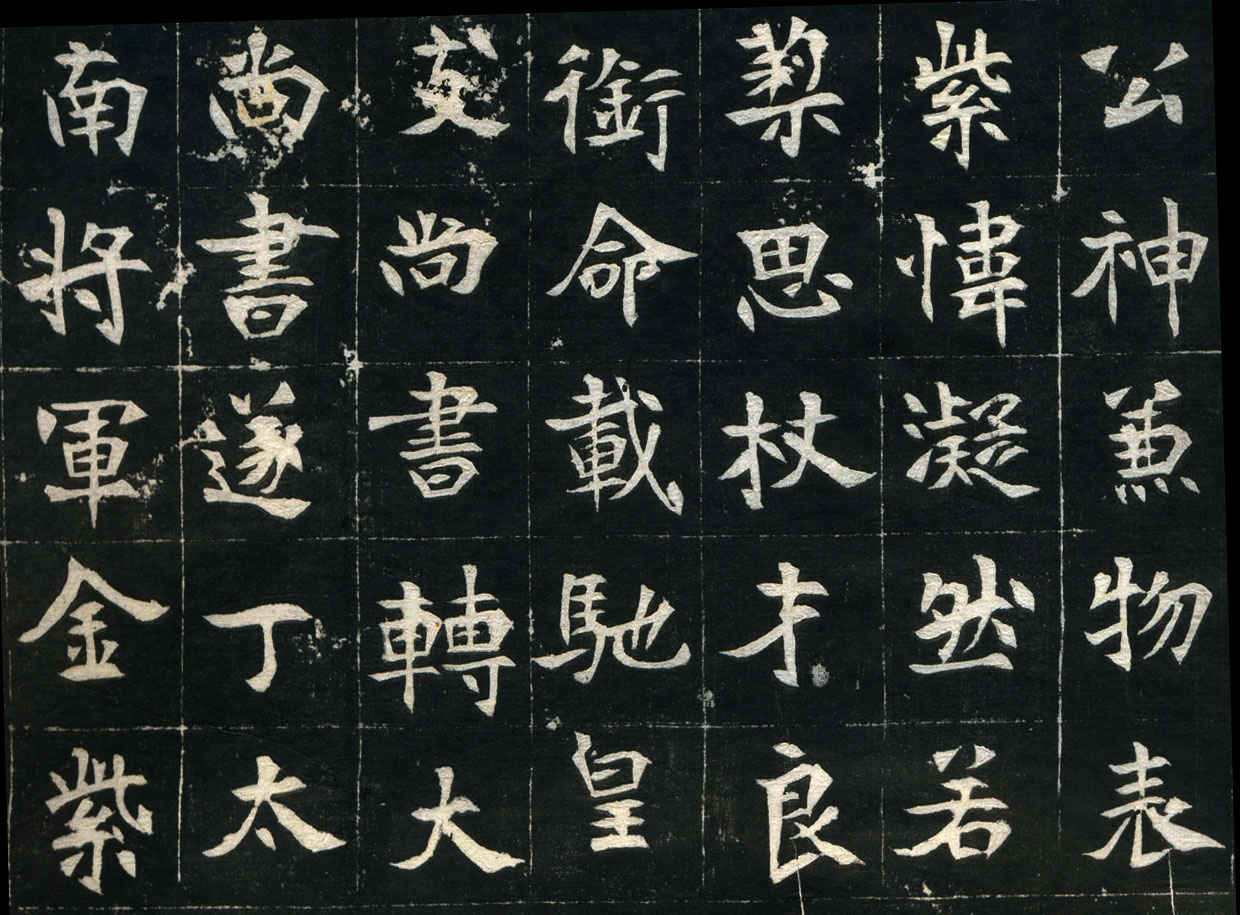 公神兼物表
紫幃凝然若
棃思杖才良
銜命載馳皇
支尚書轉大
尚書遂丁太
南将軍金紫